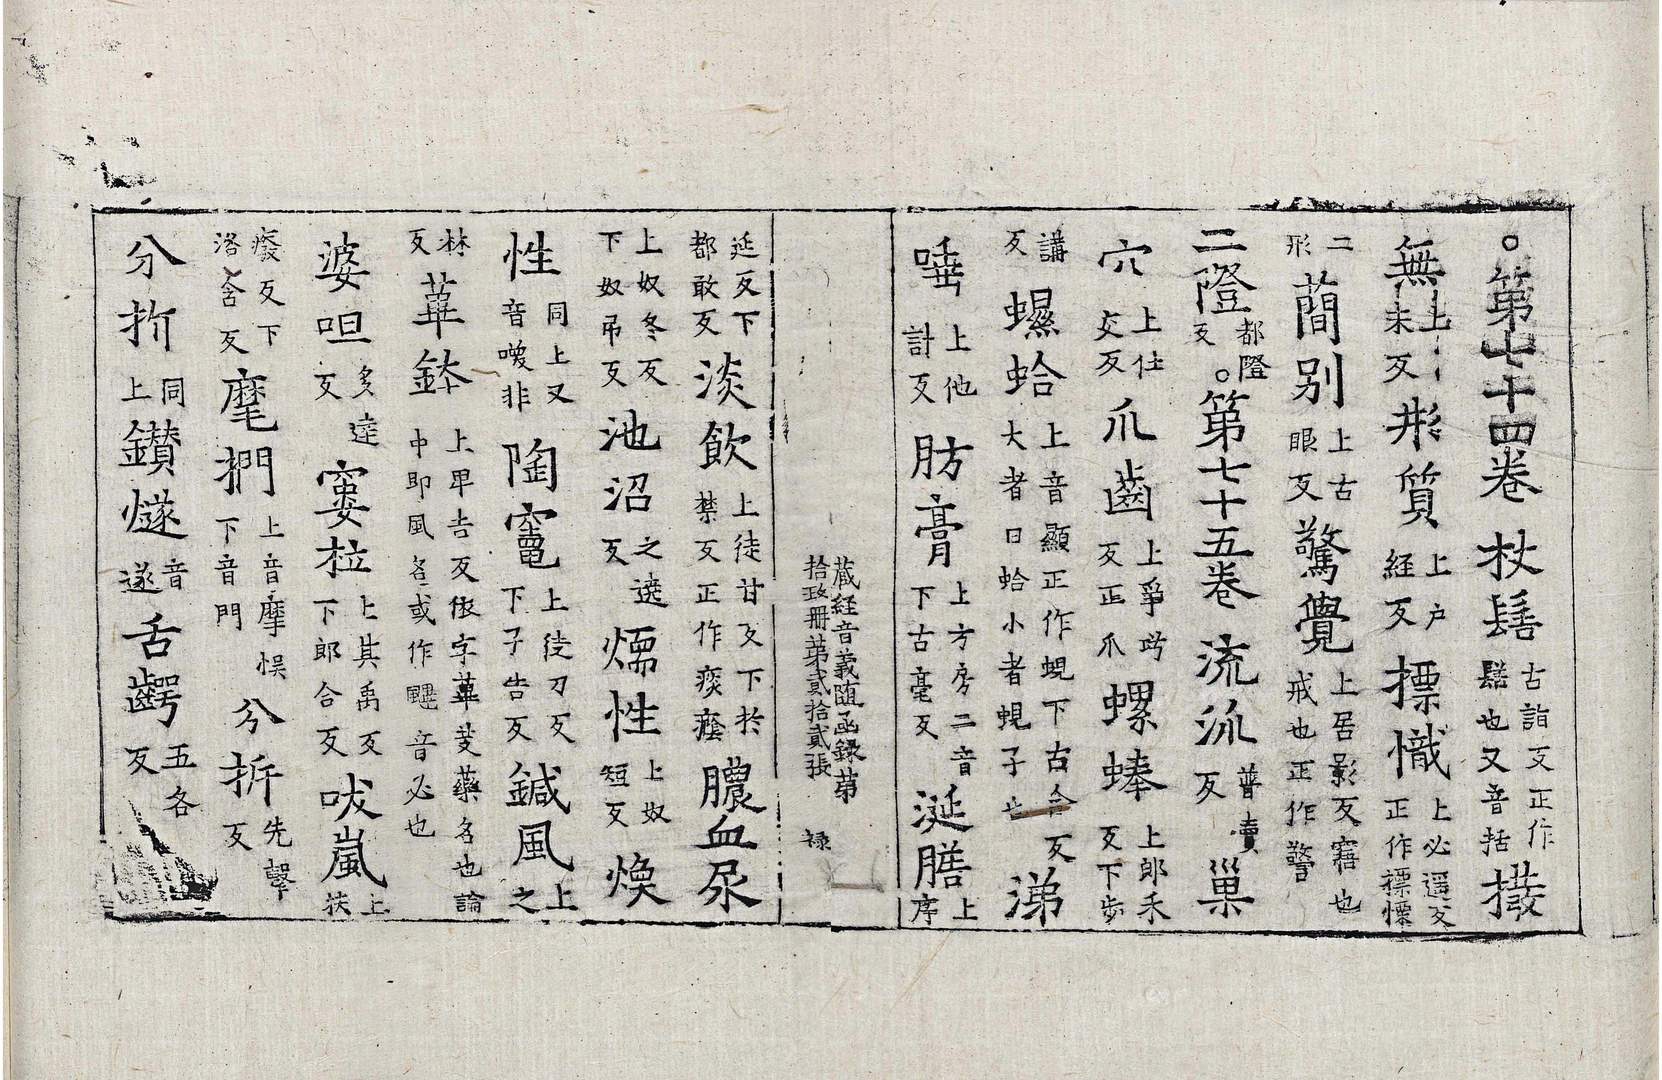 。第七十四卷 杖髻 古詣反正作髺也又音括 撥
無 上未反 形質 上戶經反 摽幟 上必遥反正作摽㦿
二形 蕳別 上古眼反 驚覺 上居影反寤也戒也正作警
二隥 都隥反 。第七十五卷 流派 普賣反 巢
穴 上仕交反 爪齒 上爭巧反正爪 螺蜯 上郎禾反下步
講反 蠉蛤 上音顯正作蜆下古合反大者曰蛤小者蜆子也 涕
唾 上他計反 肪膏 上方房二音下古毫反 涎膳 上序
藏經音義隨函錄第拾政冊第貳拾貳張 祿
延反下都敢反 淡飲 上徒甘反下於禁反正作痰癊 膿血尿
上奴冬反下奴吊反 池沼 之遶反 煗性 上奴短反 煥
性 同上又音喚非 陶竃 上徒刀反下子告反 鍼風 上之
林反 蓽鉢 上卑吉反依字蓽茇藥名也論中即風名或作颸音必也
婆呾 多達反 窶柆 上其禹反下郎合反 吠嵐 上扶
癈反下洛含反 麾捫 上音摩悮下音門 分析 先擊反
分折 同上 鑽燧 音遂 舌齶 五各反